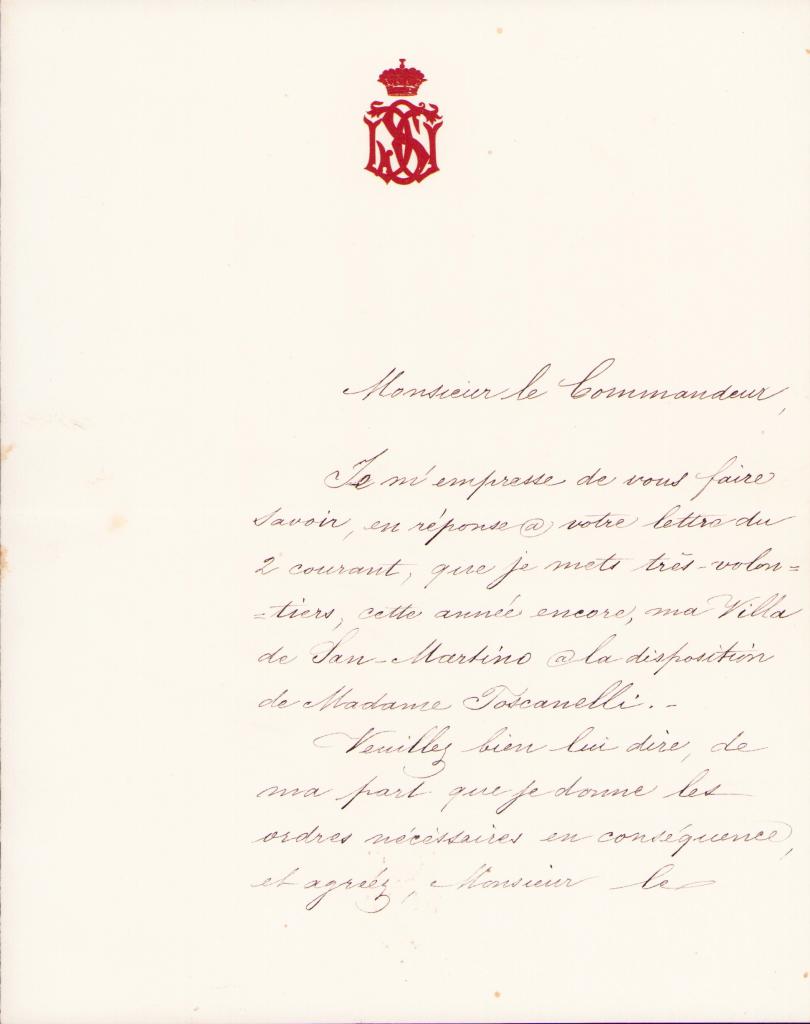 Monsieur le Commandeur,
Je m'empresse de vous faire
savoir, en réponse @ votre lettre du
2 courant, que je mets très-volon=
=tiers, cette année encore, ma Villa
de San-Martino @ la disposition
de Madame Toscanelli.-
Veuillez bien lui dire, de
ma part que je donne les
ordres nécéssaires en conséquence,
et agréez, Monsieur le